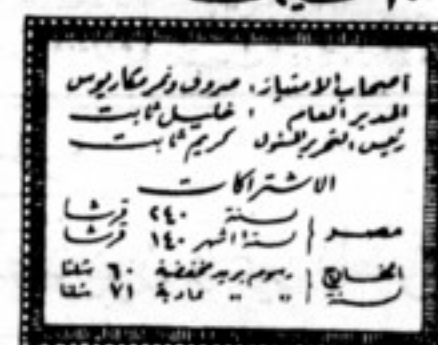 اصحاب الامتياز : صروف ونمر مكاريوس
المدير العام : خليل ثابت
رئيس التحرير المسئول كريم ثابت
الاشتراكات
مصر سنة ٢٤٠ قرشا
ستة اشهر ١٤٠ قرشا
الخارج رسوم بريد مخفضة ٦٠ شلنا
سنة " " عادية ٧١ شلنا